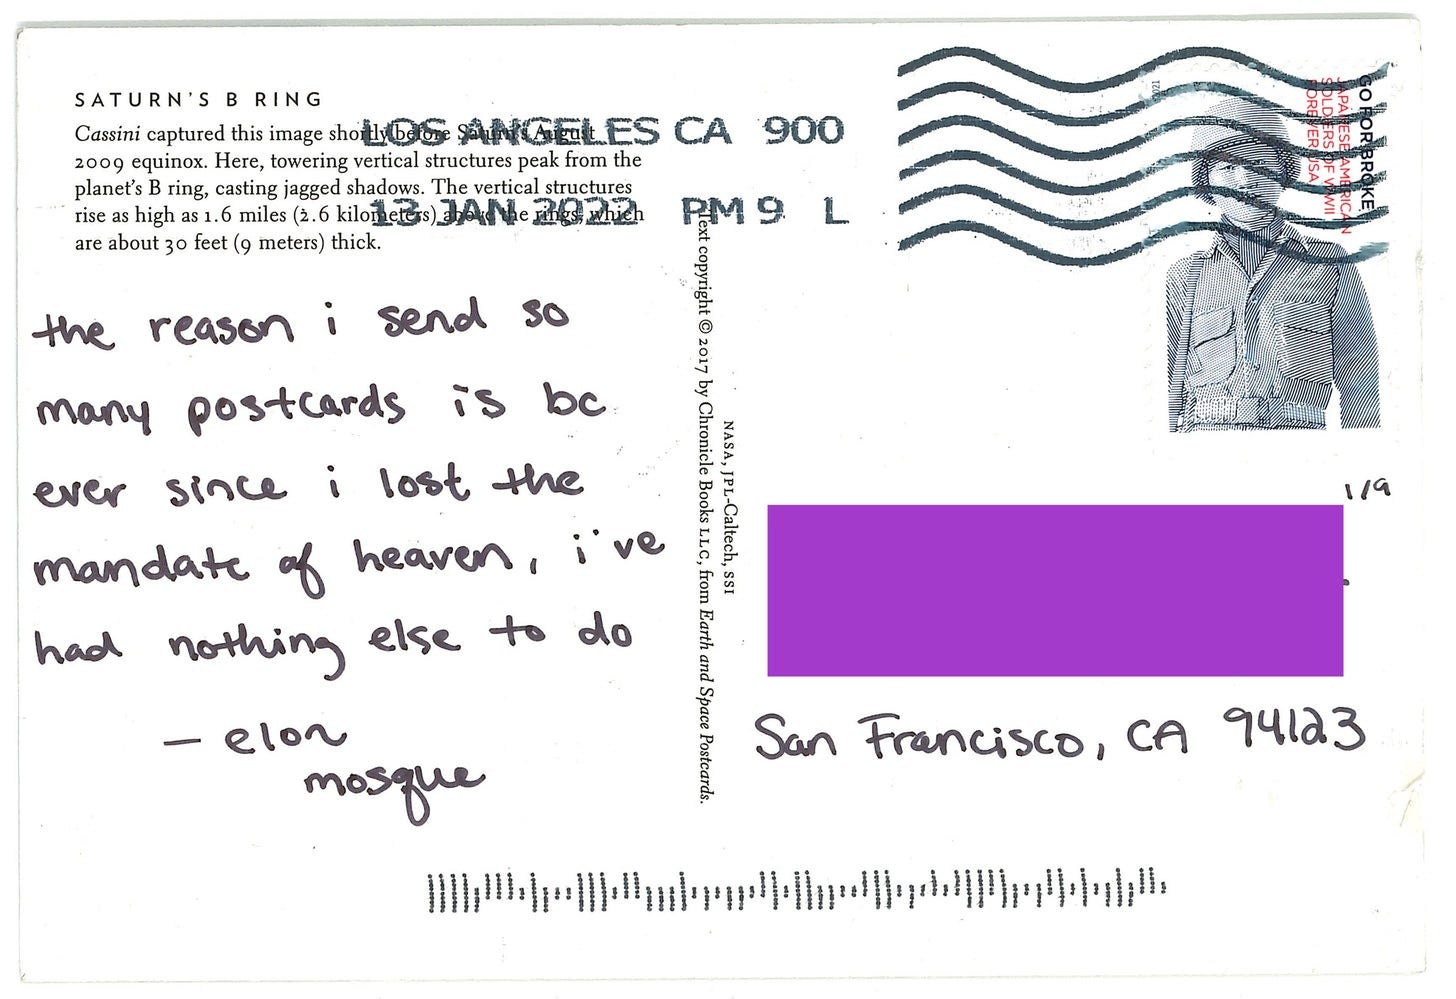 SATURN'S B RING
Cassini captured this image shortly before Saturn's August
2009 equinox. Here, towering vertical structures peak from the
planet's B ring, casting jagged shadows. The vertical structures
rise as high as 1.6 miles (2.6 kilometers) above the rings, which
are about 30 feet (9 meters) thick.
LOS ANGELES CA 900
13 JAN 2022 PM 9 L
GO FOR BROKE
JAPANESE AMERICAN
SOLDIERS OF WWII
FOREVER USA
the reason i send so
many postcards is bc
ever since i lost the
mandate of heaven, i've
had nothing else to do
— elon
mosque
NASA, JPL-Caltech, SSI
Text copyright © 2017 by Chronicle Books LLC, from Earth and Space Postcards.
1/9
San Francisco, CA 94123